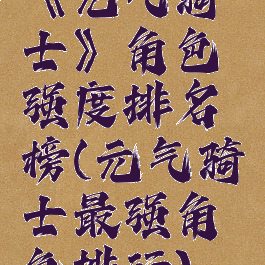 《元气骑
士》角色
强度排名
榜(元气骑
士最强角
色排行)